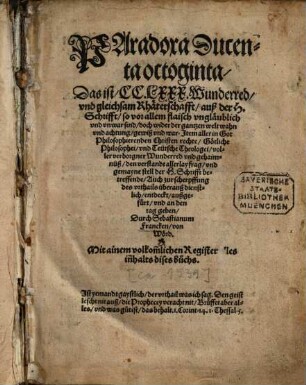 PAradoxa Ducen-
ta octoginta/
Das ist/ CCLXXX. Wunderred/
vnd gleichsam Rhäterschafft/ auß der H.
Schrifft/ so vor allem flaisch vnglaublich
vnd vnwar sind/ doch wider der gantzen welt wahn
vnd achtung/ gewiß vnd war. Item aller in Got
Philosophierenden Christen rechte/ Götliche
Philosophei/ vnd Teütsche Theologei/ vol-
ler verborgner Wunderred vnd gehaim-
nüß/ den verstande allerlay frag/ vnd
gemayne stell der H. Schrifft be-
treffende/ Auch zur scherpffung
des vrthails überauß dienst-
lich/ entdeckt/ außge-
fürt/ vnd an den
tag geben/
Durch Sebastianum
Francken/ von
Wörd.
Mit ainem volkomlichen Register des
inhalts dises büchs.
BAYERISCHE
STAATS-
BIBLIOTHEK
MUENCHEN
Ist yemandt gaystlich/ der vrthail was ich sag. Den geist
lescht nit auß/ die Prophecey veracht nit/ Brüfft aber al-
les/ vnd was gůt ist/ das behalt. 1. Corint. 14. 1. Thessal. 5.